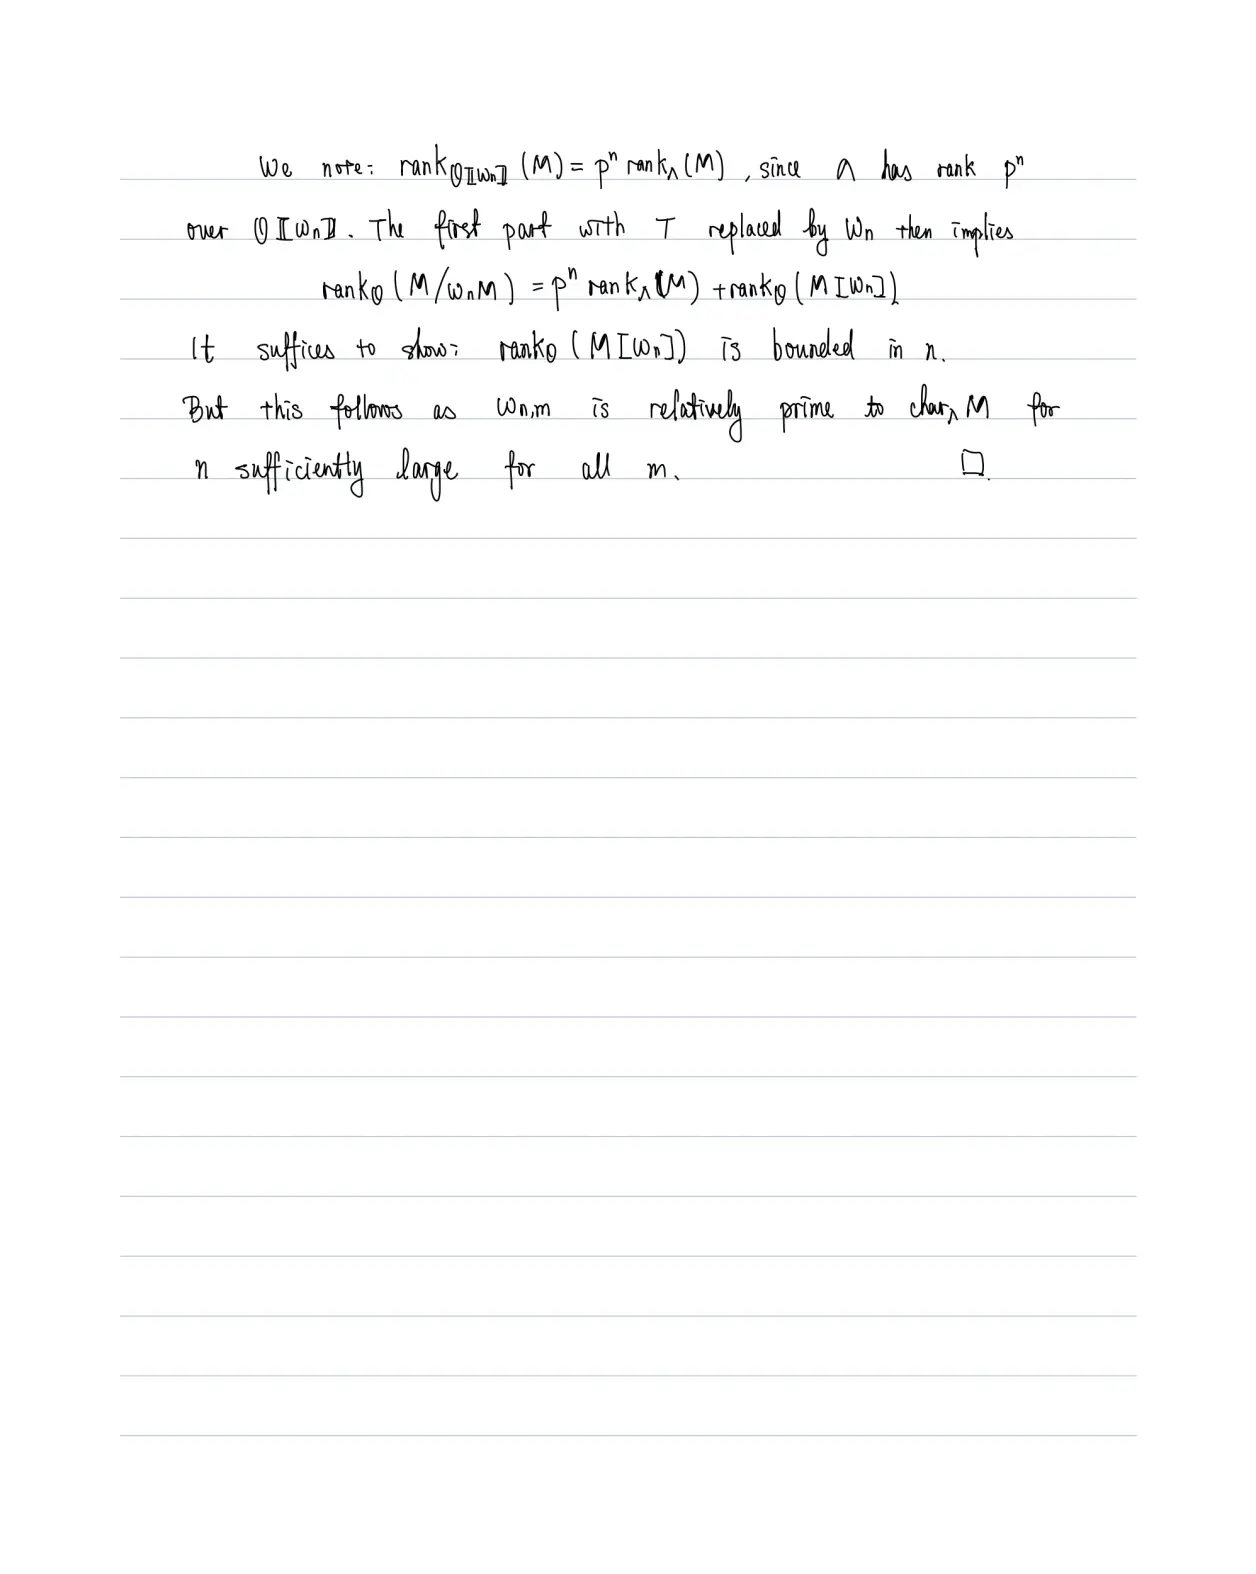 We note: rank_{𝒪⟦ωₙ⟧} (M) = pⁿ rank_Λ (M), since Λ has rank pⁿ
over 𝒪⟦ωₙ⟧. The first part with T replaced by ωₙ then implies
rank_𝒪 (M/ωₙM) = pⁿ rank_Λ (M) + rank_𝒪 (M[ωₙ])
It suffices to show: rank_𝒪 (M[ωₙ]) is bounded in n.
But this follows as ω_{n,m} is relatively prime to char_Λ M for
n sufficiently large for all m. □.